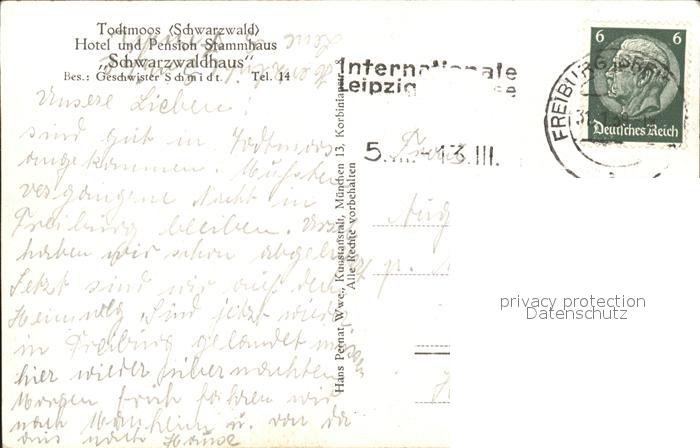 Todtmoos (Schwarzwald)
Hotel und Pension Stammhaus
„Schwarzwaldhaus"
Bes.: Geschwister Schmidt. Tel. 14
Unsere Lieben!
sind gut in Todtmoos
angekommen. Mußten
vergangene Nacht in
Freiburg bleiben.
haben wir schon
Jetzt sind wir auf dem
Heimweg. Sind jetzt wieder
in Freiburg gelandet
hier wieder übernachten
Morgen früh fahren wir
nach Mannheim u. von da
aus nach Hause
Hans Pernat Wwe., Kunstanstalt, München 13, Korbinianstr. 8
Alle Rechte vorbehalten
Internationale
Leipzig
5. - 13. III.
FREIBURG
6 6
Deutsches Reich
privacy protection
Datenschutz